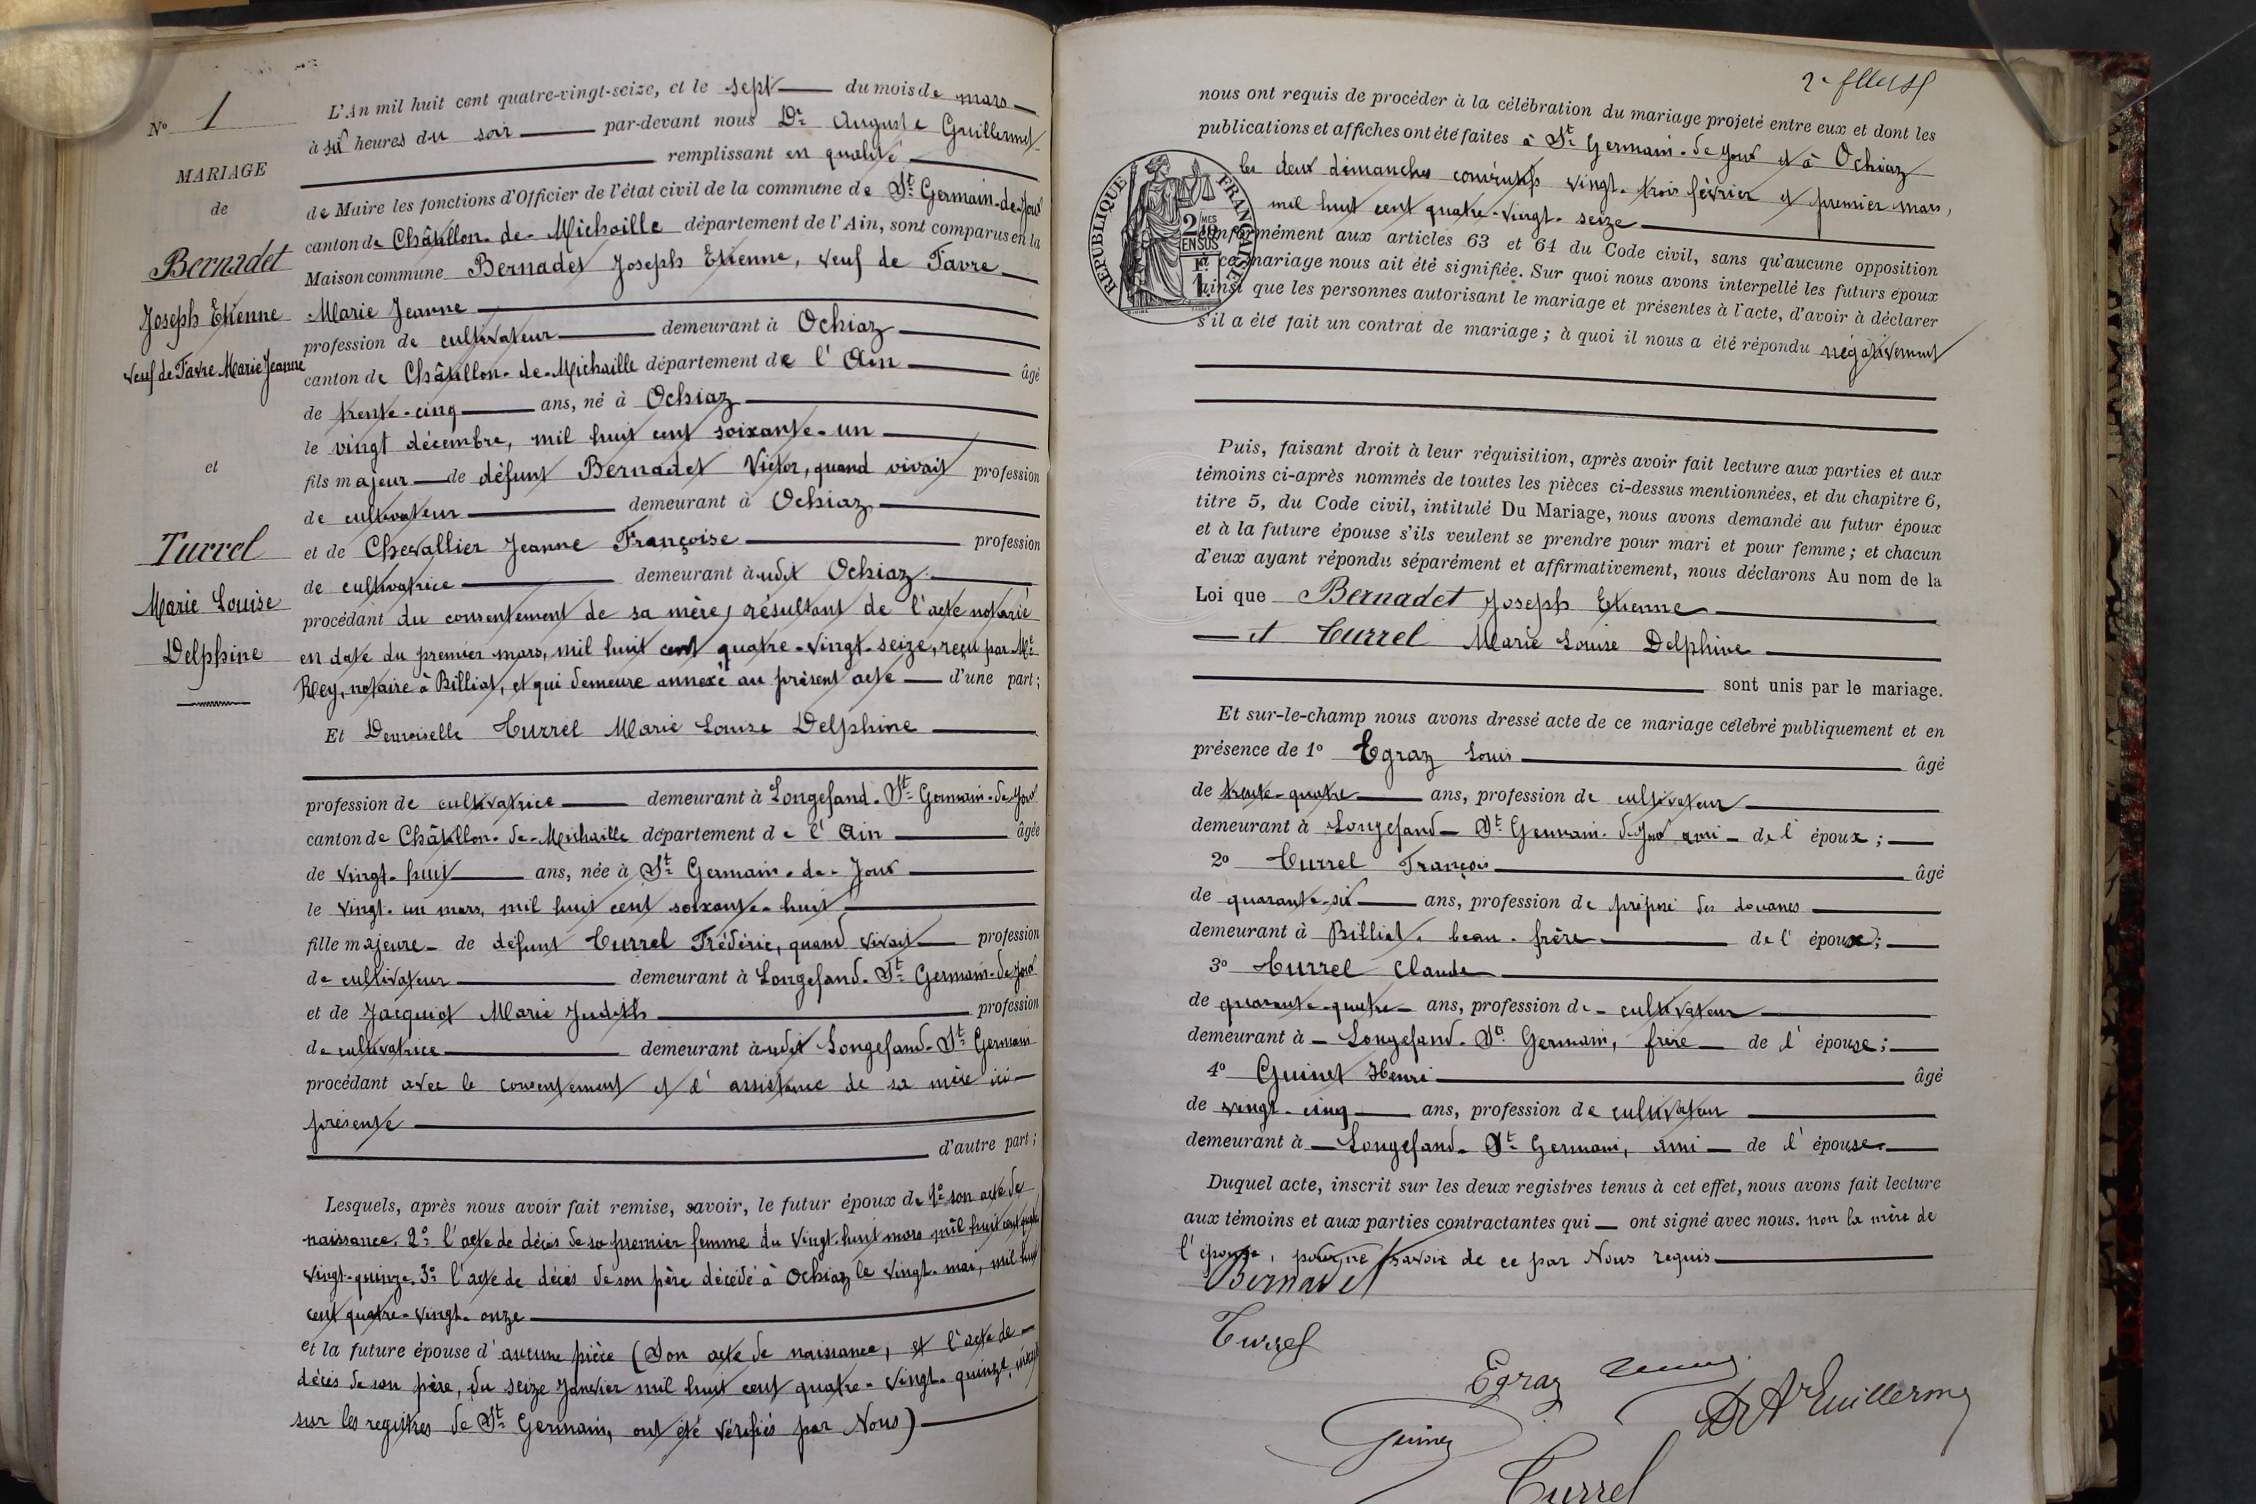 N° 1
MARIAGE
de
Bernadet
Joseph Etienne
veuf de Favre Marie Jeanne
et
Turrel
Marie Louise
Delphine
L'An mil huit cent quatre-vingt-seize, et le sept du mois de mars
à six heures du soir par-devant nous Dr Auguste Guillermet
remplissant en qualité
de Maire les fonctions d'Officier de l'état civil de la commune de St Germain-de-Joux
canton de Châtillon-de-Michaille département de l'Ain, sont comparus en la
Maison commune Bernadet Joseph Etienne, veuf de Favre
Marie Jeanne
profession de cultivateur demeurant à Ochiaz
canton de Châtillon-de-Michaille département de l'Ain âgé
de trente-cinq ans, né à Ochiaz
le vingt décembre, mil huit cent soixante-un
fils majeur de défunt Bernadet Victor, quand vivait profession
de cultivateur demeurant à Ochiaz
et de Chevallier Jeanne Françoise profession
de cultivatrice demeurant àudit Ochiaz
procédant du consentement de sa mère, résultant de l'acte notarié
en date du premier mars, mil huit cent quatre-vingt-seize, reçu par Mt
Rey, notaire à Billiat, et qui demeure annexé au présent acte d'une part;
Et Demoiselle Turrel Marie Louise Delphine
profession de cultivatrice demeurant à Longefand-St Germain-de-Joux
canton de Châtillon-de-Michaille département de l'Ain âgée
de vingt-huit ans, née à St Germain-de-Joux
le vingt-un mars, mil huit cent soixante-huit
fille majeure de défunt Turrel Frédéric, quand vivait profession
de cultivateur demeurant à Longefand-St Germain-de-Joux
et de Jacquiot Marie Judith profession
de cultivatrice demeurant àudit Longefand-St Germain
procédant avec le consentement et l'assistance de sa mère ici
présente
d'autre part;
Lesquels, après nous avoir fait remise, savoir, le futur époux de 1° son acte de
naissance. 2° l'acte de décès de sa premier femme du vingt-huit mars mil huit cent quatre
vingt-quinze. 3° l'acte de décès de son père décédé à Ochiaz le vingt-mai, mil huit
cent quatre-vingt-onze
et la future épouse d'aucune pièce (Son acte de naissance, et l'acte de
décès de son père, du seize Janvier mil huit cent quatre-vingt-quinze,
sur les registres de St Germain, ont été vérifiés par Nous)
nous ont requis de procéder à la célébration du mariage projeté entre eux et dont les
publications et affiches ont été faites à St Germain-de-Joux et à Ochiaz
les deux dimanches consécutifs vingt-trois février et premier mars,
mil huit cent quatre-vingt-seize
conformément aux articles 63 et 64 du Code civil, sans qu'aucune opposition
à ce mariage nous ait été signifiée. Sur quoi nous avons interpellé les futurs époux
ainsi que les personnes autorisant le mariage et présentes à l'acte, d'avoir à déclarer
s'il a été fait un contrat de mariage; à quoi il nous a été répondu négativement
REPUBLIQUE FRANÇAISE
2 MES
EN SUS
Puis, faisant droit à leur réquisition, après avoir fait lecture aux parties et aux
témoins ci-après nommés de toutes les pièces ci-dessus mentionnées, et du chapitre 6,
titre 5, du Code civil, intitulé Du Mariage, nous avons demandé au futur époux
et à la future épouse s'ils veulent se prendre pour mari et pour femme; et chacun
d'eux ayant répondu séparément et affirmativement, nous déclarons Au nom de la
Loi que Bernadet Joseph Etienne
et Turrel Marie Louise Delphine
sont unis par le mariage.
Et sur-le-champ nous avons dressé acte de ce mariage célébré publiquement et en
présence de 1° Egraz Louis âgé
de trente-quatre ans, profession de cultivateur
demeurant à Longefand-St Germain-de-Joux ami de l'époux;
2° Turrel François âgé
de quarante-six ans, profession de préposé des douanes
demeurant à Billiat, beau-frère de l'époux;
3° Turrel Claude
de quarante-quatre ans, profession de cultivateur
demeurant à Longefand-St Germain, frère de l'épouse;
4° Guinet Henri âgé
de vingt-cinq ans, profession de cultivateur
demeurant à Longefand-St Germain, ami de l'épouse.
Duquel acte, inscrit sur les deux registres tenus à cet effet, nous avons fait lecture
aux témoins et aux parties contractantes qui ont signé avec nous. non la mère de
l'épouse, pour ne savoir de ce par Nous requis
Bernadet
Turrel
Egraz
Dr Ate Guillermet
Guinet
Turrel